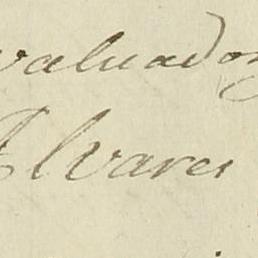 valuador
Alvares